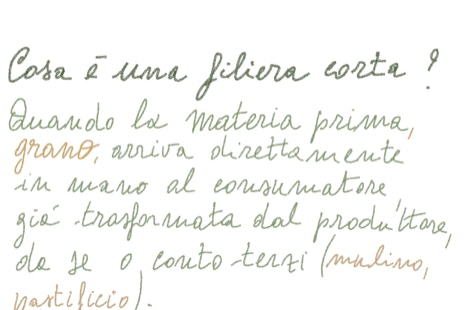 Cosa è una filiera corta ?
Quando la materia prima,
grano, arriva direttamente
in mano al consumatore,
già trasformata dal produttore,
da se o conto terzi (mulino,
pastificio).